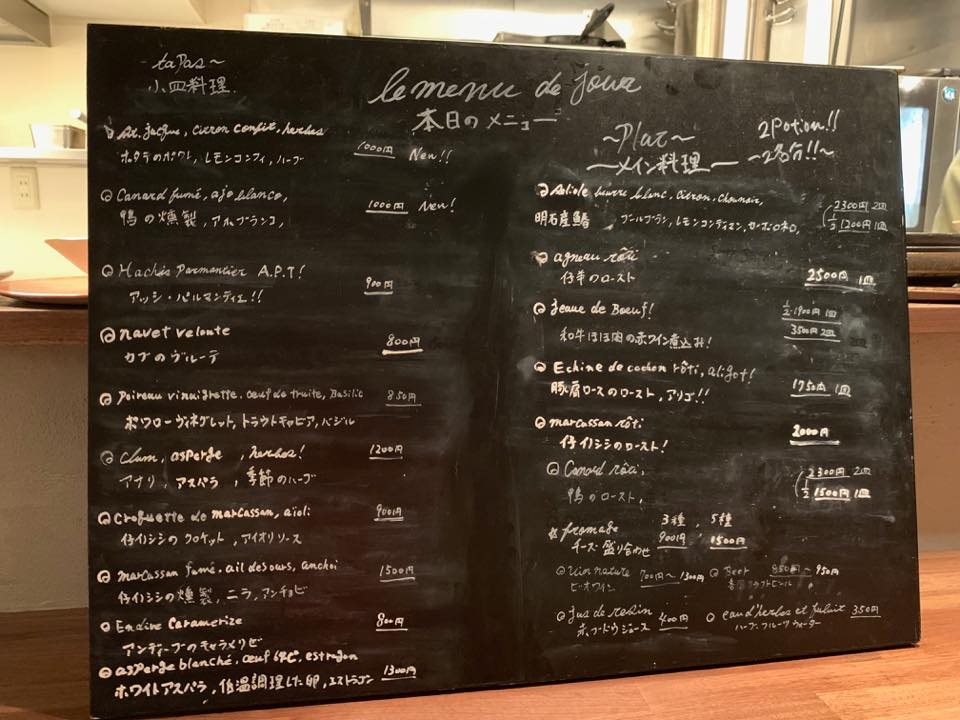 -taPas~
小皿料理.
le menu de jour
本日のメニュー
St. Jacque, citron confit, herbes
ホタテのポワレ, レモンコンフィ, ハーブ 1000円 New!!
Canard fumé, ajo blanco,
鴨の燻製, アホブランコ, 1000円 New!
Hachis Parmantier A.P.T!
アッシ・パルマンティエ!! 900円
navet veloute
カブのヴルーテ 800円
Poireau vinaigrette. oeuf de truite, Basilic 850円
ポワローヴィネグレット, トラウトキャビア, バジル
Clam, asperge, herbes! 1200円
アサリ, アスパラ, 季節のハーブ
Croquette de marcassan, aïoli 900円
仔イノシシのクロケット, アイオリソース
marcassan fumé, ail des ours, anchoi 1500円
仔イノシシの燻製, ニラ, アンチョビ
Endive Caramerize 800円
アンディーブのキャラメリゼ
asperge blanché, oeuf 64℃, estragon
ホワイトアスパラ, 低温調理した卵, エストラゴン 1300円
~Plat~ 2Potion!!
—メイン料理— ~2名分!!~
beurre blanc, citron,
明石産鰆 ブールブラン, レモンコンディマン, 2300円 2皿 1/2 1200円 1皿
agneau rôti
仔羊のロースト 2500円 1皿
Jeaue de Boeuf! 1/2 1900円 1皿
和牛ほほ肉の赤ワイン煮込み! 3500円 2皿
Echine de cochon rôti, aligot!
豚肩ロースのロースト, アリゴ!! 1750円 1皿
marcassan rôti
仔イノシシのロースト! 2000円
Canard rôti, 2300円 2皿
鴨のロースト, 1/2 1500円 1皿
fromage 3種, 5種
チーズ盛り合わせ 900円 1500円
Vin nature 700円~1300円
ビオワイン
Beer 850円~950円
クラフトビール
Jus de resin 400円
赤ブードウジュース
eau d'herbes et fuluit 350円
ハーブ フルーツウォーター